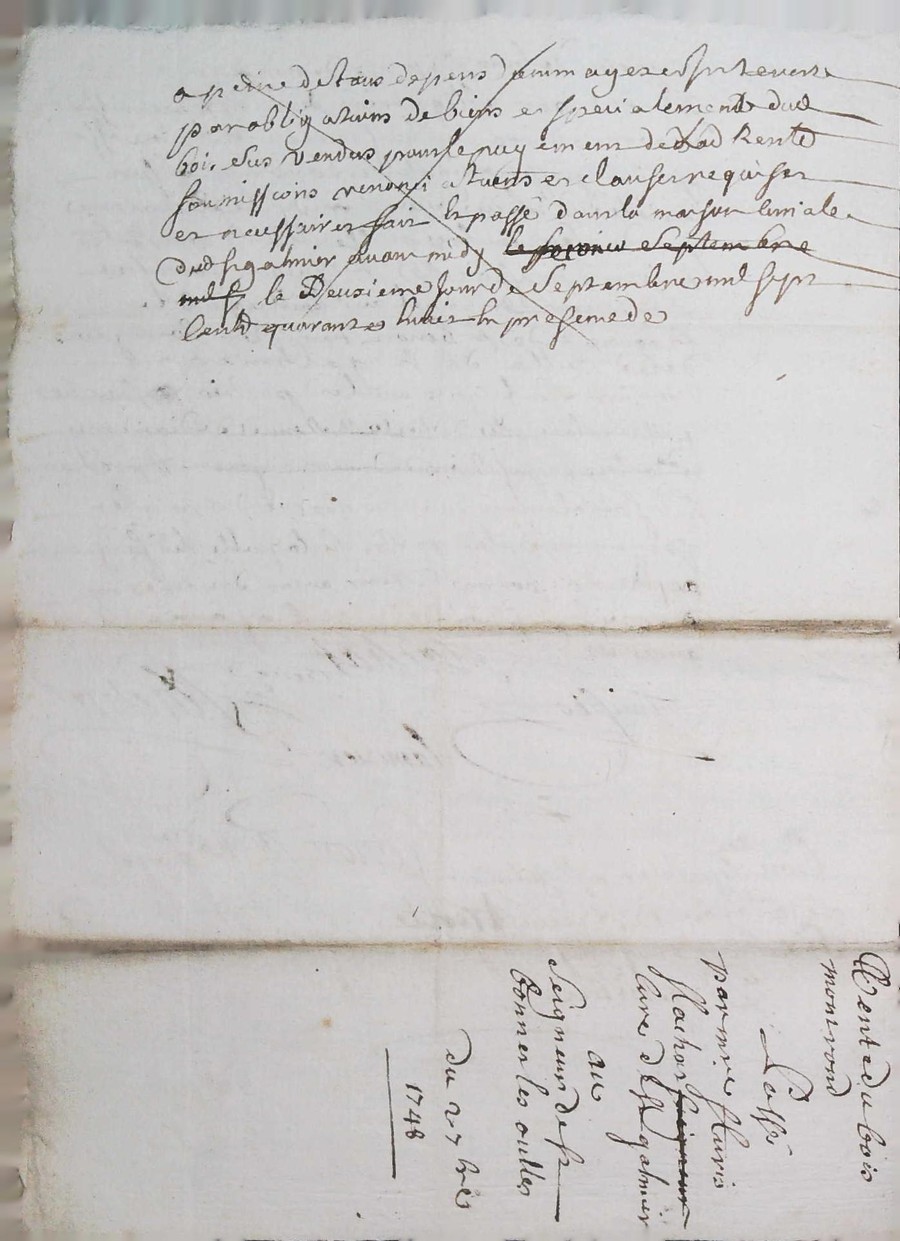 a peine de tous depens dommages et jnterests
par obligations de biens et specialement dud
bois sus vendus pour le payement de lad Rente
soumissions renonciations et clauses requises
et necessaires fait et passé dans la maison curiale
dud st galmier avant midy le second septembre
mil s le Deuxieme jour de septembre mil sept
cents quarante huit en presence de
Vente du bois
montrond
Passé
par mre fleuris
flachat seigneur
curé de st galmier
au
seigneur de st
bonnet les oulles
du 2 7bre
1748